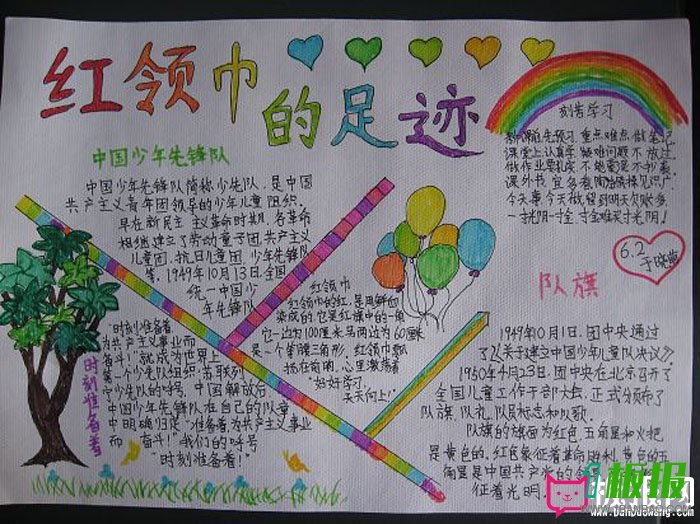 红领巾
的足迹
中国少年先锋队
中国少年先锋队简称少先队,是中国
共产主义青年团领导的少年儿童组织。
早在新民主主义革命时期,各革命
相继建立了劳动童子团,共产主义
儿童团,抗日儿童团,少年先锋队
等,1949年10月13日全国
统一中国少
年先锋队
时刻准备着
"时刻准备着
为共产主义事业而
奋斗!"就成为世界上
第一个少先队组织:苏联列
宁少先队的呼号,中国解放后,
中国少年先锋队在自己的队章
中明确归定"准备着为共产主义事业
而奋斗!"我们的呼号
"时刻准备着!"
红领巾
红领巾的红,是用鲜血
染成的,它是红旗中的一角
它一边为100厘米另两边为60厘米
是一个等腰三角形,红领巾飘
扬在前胸,心里激荡着
"好好学习,
天天向上!"
刻苦学习
新课前先预习,重点难点做笔记
课堂上认真学,疑难问题不放过,
课外书,宜多看,
今天事今天做,留到明天欠账多
一寸光阴一寸金,寸金难买寸光阴!
6.2
队旗
1949年10月1日,团中央通过
了《关于建立中国少年儿童队决议》。
1950年4月23日,团中央在北京召开了
全国儿童工作干部大会,正式颁布了
队旗,队礼,队员标志和队歌。
队旗的旗面为红色,五角星和火把
是黄色的,红色象征着革命胜利,黄色的五
角星是中国共产党的
征着光明。
板报网
www.banbaowang.com